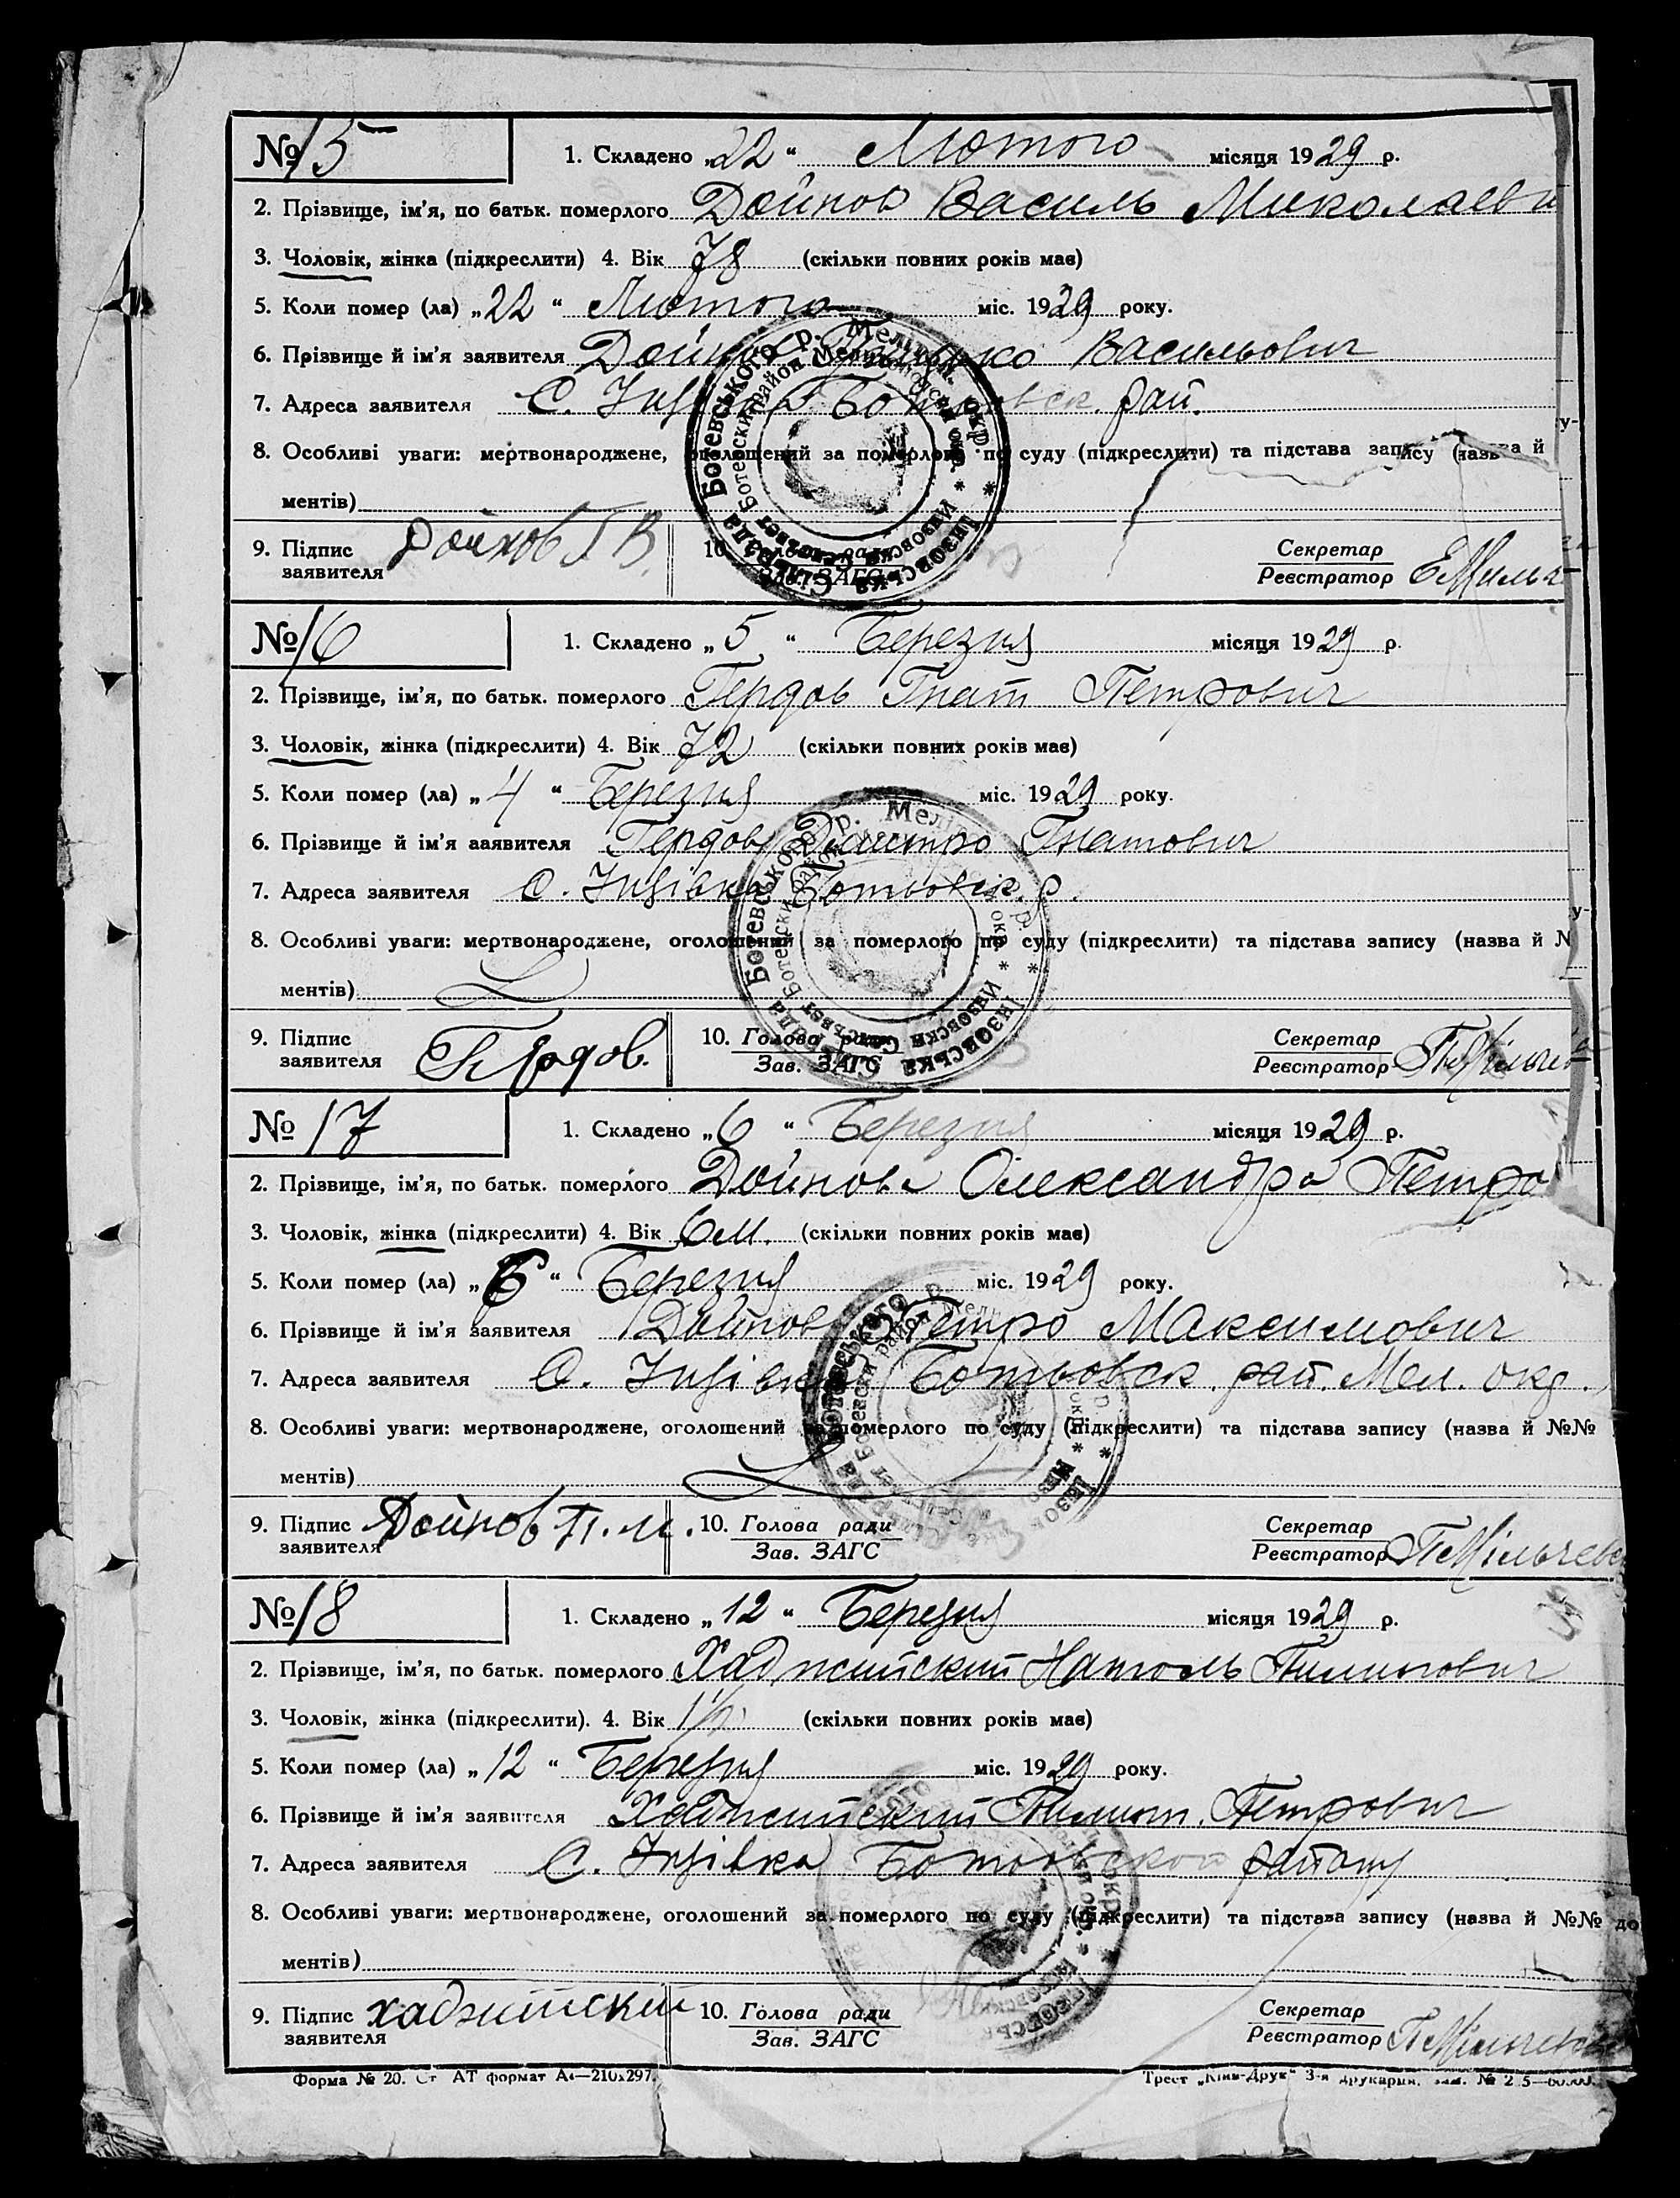 № 15 1. Складено „22“ Лютого місяця 1929 р.
2. Прізвище, ім'я, по батьк. померлого Дойнов Василь Миколаеви
3. Чоловік, жінка (підкреслити) 4. Вік 78 (скільки повних років має)
5. Коли помер (ла) „22“ Лютого міс. 1929 року.
6. Прізвище й ім'я заявителя Дойнов Васильович
7. Адреса заявителя С. Інзівка Ботьовск. рай.
8. Особливі уваги: мертвонароджене, оголошений за померлого по суду (підкреслити) та підстава запису (назва й
ментів)
9. Підпис заявителя Дойнов Г В. 10. Голова ради Зав. ЗАГС Секретар Реєстратор
№ 16 1. Складено „5“ Березня місяця 1929 р.
2. Прізвище, ім'я, по батьк. померлого Гердов Гнат Петрович
3. Чоловік, жінка (підкреслити) 4. Вік 72 (скільки повних років має)
5. Коли помер (ла) „4“ Березня міс. 1929 року.
6. Прізвище й ім'я заявителя Гердов Дмитро Гнатович
7. Адреса заявителя С. Інзівка Ботьовск. р.
8. Особливі уваги: мертвонароджене, оголошений за померлого по суду (підкреслити) та підстава запису (назва й N
ментів)
9. Підпис заявителя Гердов. 10. Голова ради Зав. ЗАГС Секретар Реєстратор
№ 17 1. Складено „6“ Березня місяця 1929 р.
2. Прізвище, ім'я, по батьк. померлого Дойнова Олександра Петро
3. Чоловік, жінка (підкреслити) 4. Вік 6 м. (скільки повних років має)
5. Коли помер (ла) „6“ Березня міс. 1929 року.
6. Прізвище й ім'я заявителя Дойнов Петро Максимович
7. Адреса заявителя С. Інзівка Ботьовск. рай. Мел. окр.
8. Особливі уваги: мертвонароджене, оголошений за померлого по суду (підкреслити) та підстава запису (назва й №№
ментів)
9. Підпис заявителя Дойнов П. М. 10. Голова ради Зав. ЗАГС Секретар Реєстратор П Мільчевс
№ 18 1. Складено „12“ Березня місяця 1929 р.
2. Прізвище, ім'я, по батьк. померлого Хаджийский Натоль Пилипович
3. Чоловік, жінка (підкреслити). 4. Вік (скільки повних років має)
5. Коли помер (ла) „12“ Березня міс. 1929 року.
6. Прізвище й ім'я заявителя Хаджийский Пилип. Петрович
7. Адреса заявителя С. Інзівка Ботьовского району
8. Особливі уваги: мертвонароджене, оголошений за померлого по суду (підкреслити) та підстава запису (назва й №№ до
ментів)
9. Підпис заявителя хаджийский 10. Голова ради Зав. ЗАГС Секретар Реєстратор П Мільчевс
Форма № 20. Ст АТ формат А4—210x297. Трест „Київ-Друк“ 3-я друкарня.